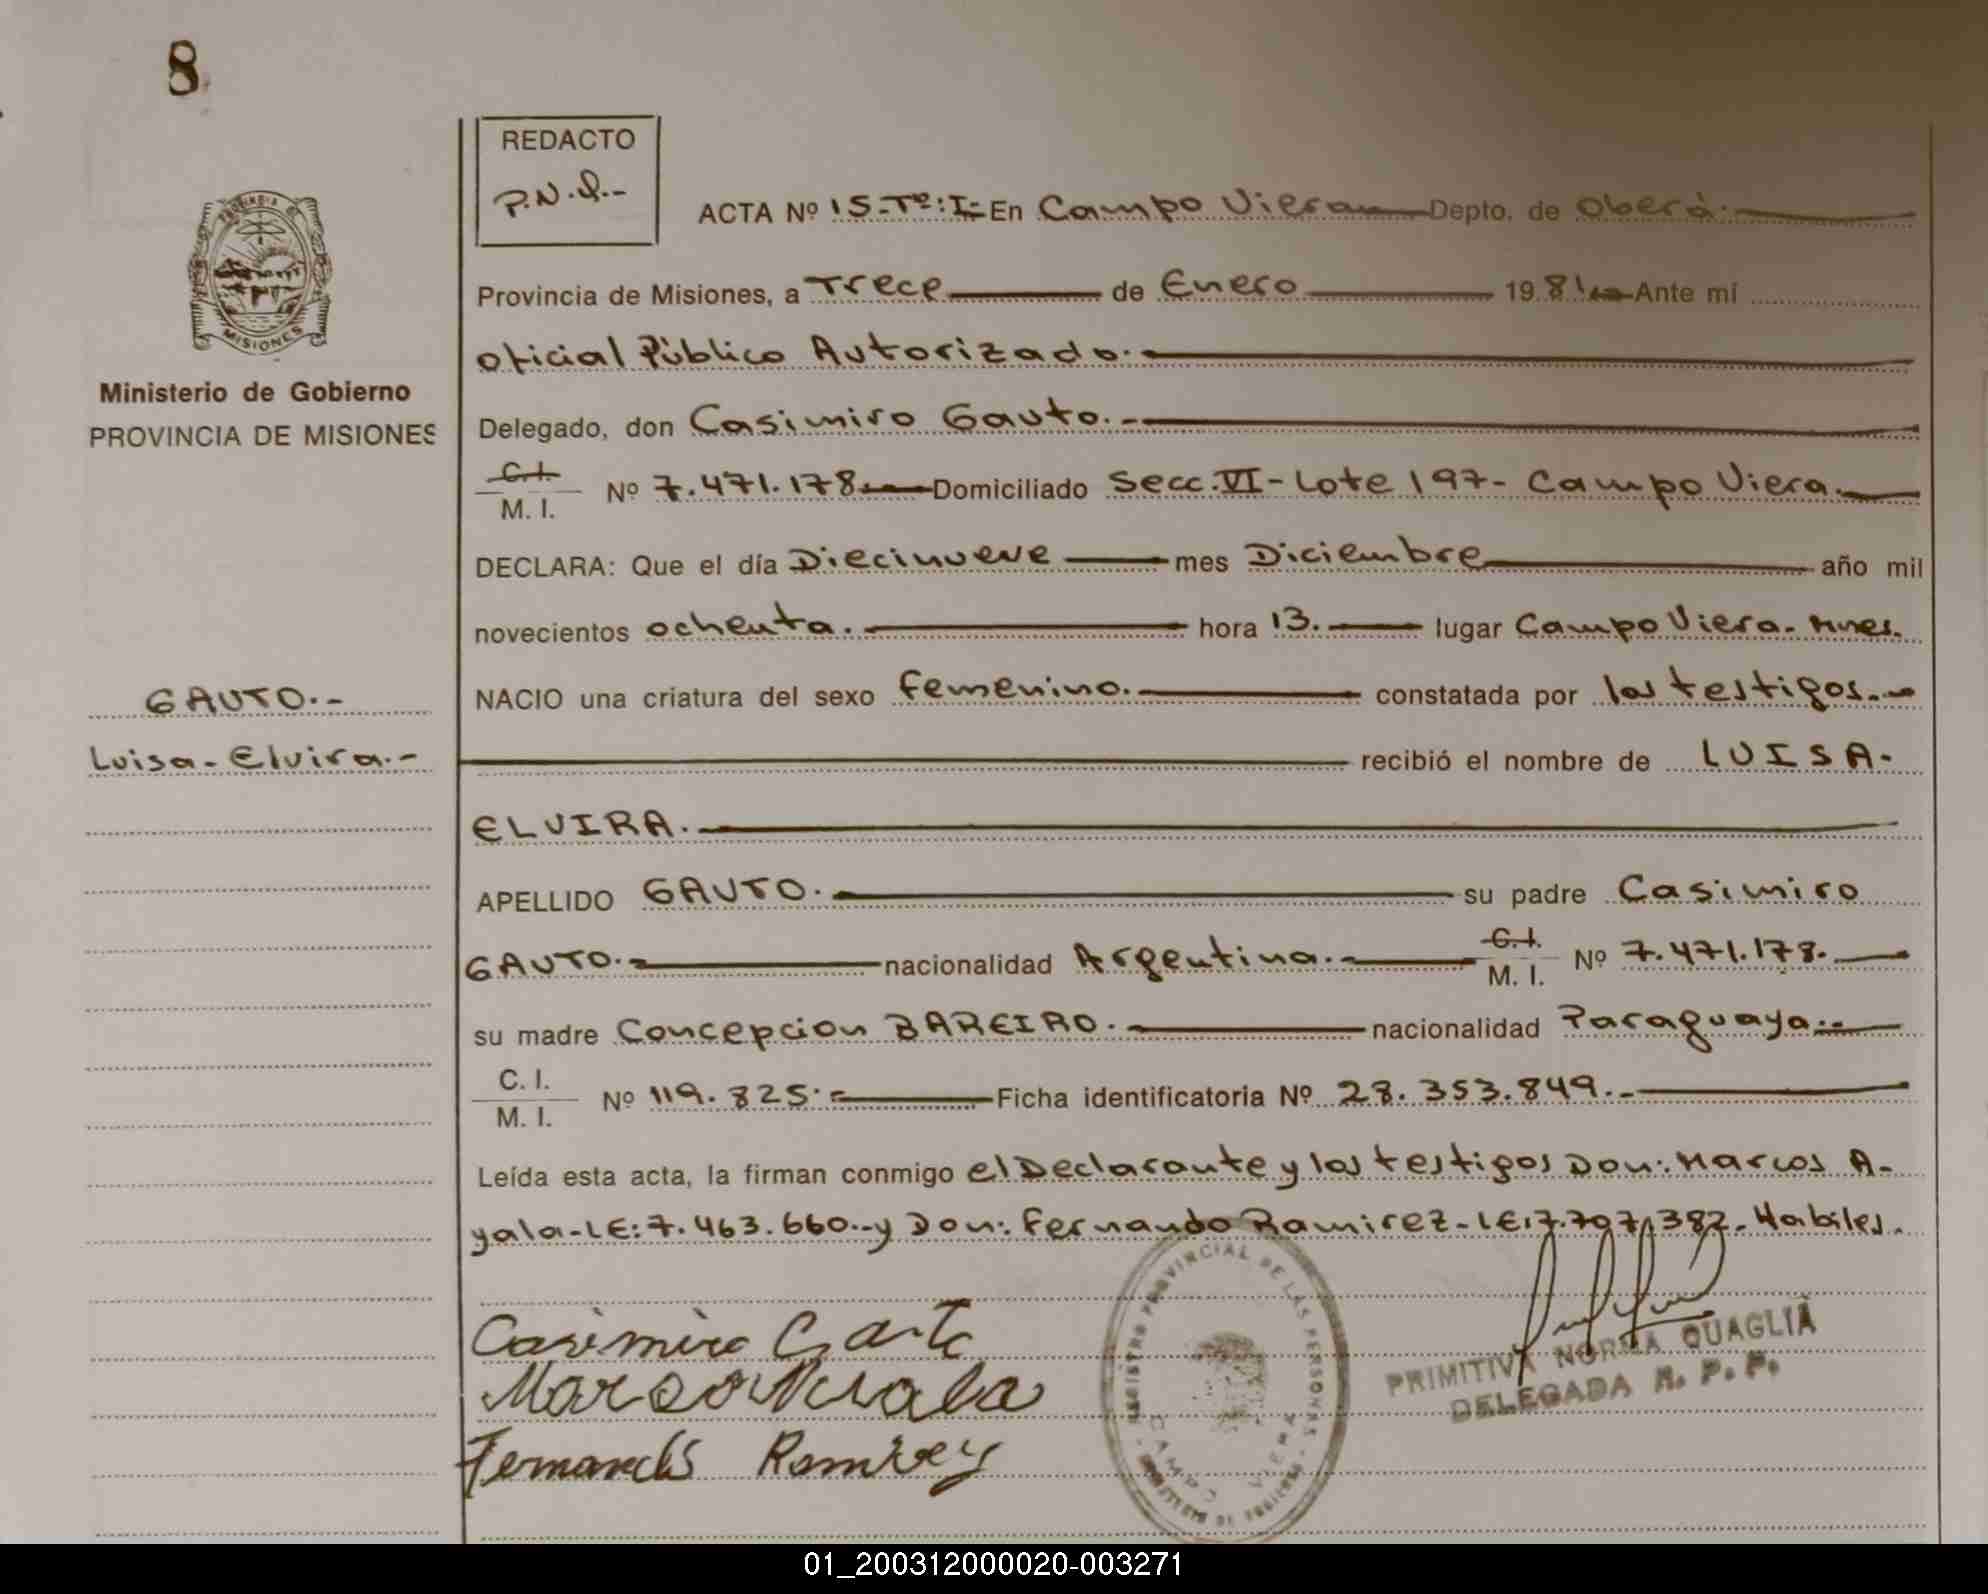 8
REDACTO
P.N.Q.-
ACTA Nº 15-Tº:I- En Campo Viera Depto. de Oberá.
Provincia de Misiones, a Trece de Enero 1981 Ante mí
Oficial Público Autorizado.
Ministerio de Gobierno
PROVINCIA DE MISIONES
MISIONES
Delegado, don Casimiro Gauto.-
C.I.
M. I. Nº 7.471.178 Domiciliado Secc. VI - Lote 197 - Campo Viera.
DECLARA: Que el día Diecinueve mes Diciembre año mil
novecientos ochenta. hora 13. lugar Campo Viera. Mnes.
GAUTO.-
NACIO una criatura del sexo femenino. constatada por los testigos.
Luisa - Elvira.-
recibió el nombre de LUISA.
ELVIRA.
APELLIDO GAUTO. su padre Casimiro
GAUTO.- nacionalidad Argentina. C.I. M. I. Nº 7.471.178.
su madre Concepcion BAREIRO. nacionalidad Paraguaya.
C. I.
M. I. Nº 119.825.- Ficha identificatoria Nº 28.353.849.-
Leída esta acta, la firman conmigo el Declarante y los testigos Don: Marcos A-
yala-LE:7.463.660.-y Don: Fernando Ramirez-LE:7.707.382-Habiles.
Casimiro Gauto
Marcos Ayala
Fernando Ramirez
REGISTRO PROVINCIAL DE LAS PERSONAS
CAMPO VIERA
PRIMITIVA NORMA QUAGLIA
DELEGADA R. P. P.
01_200312000020-003271